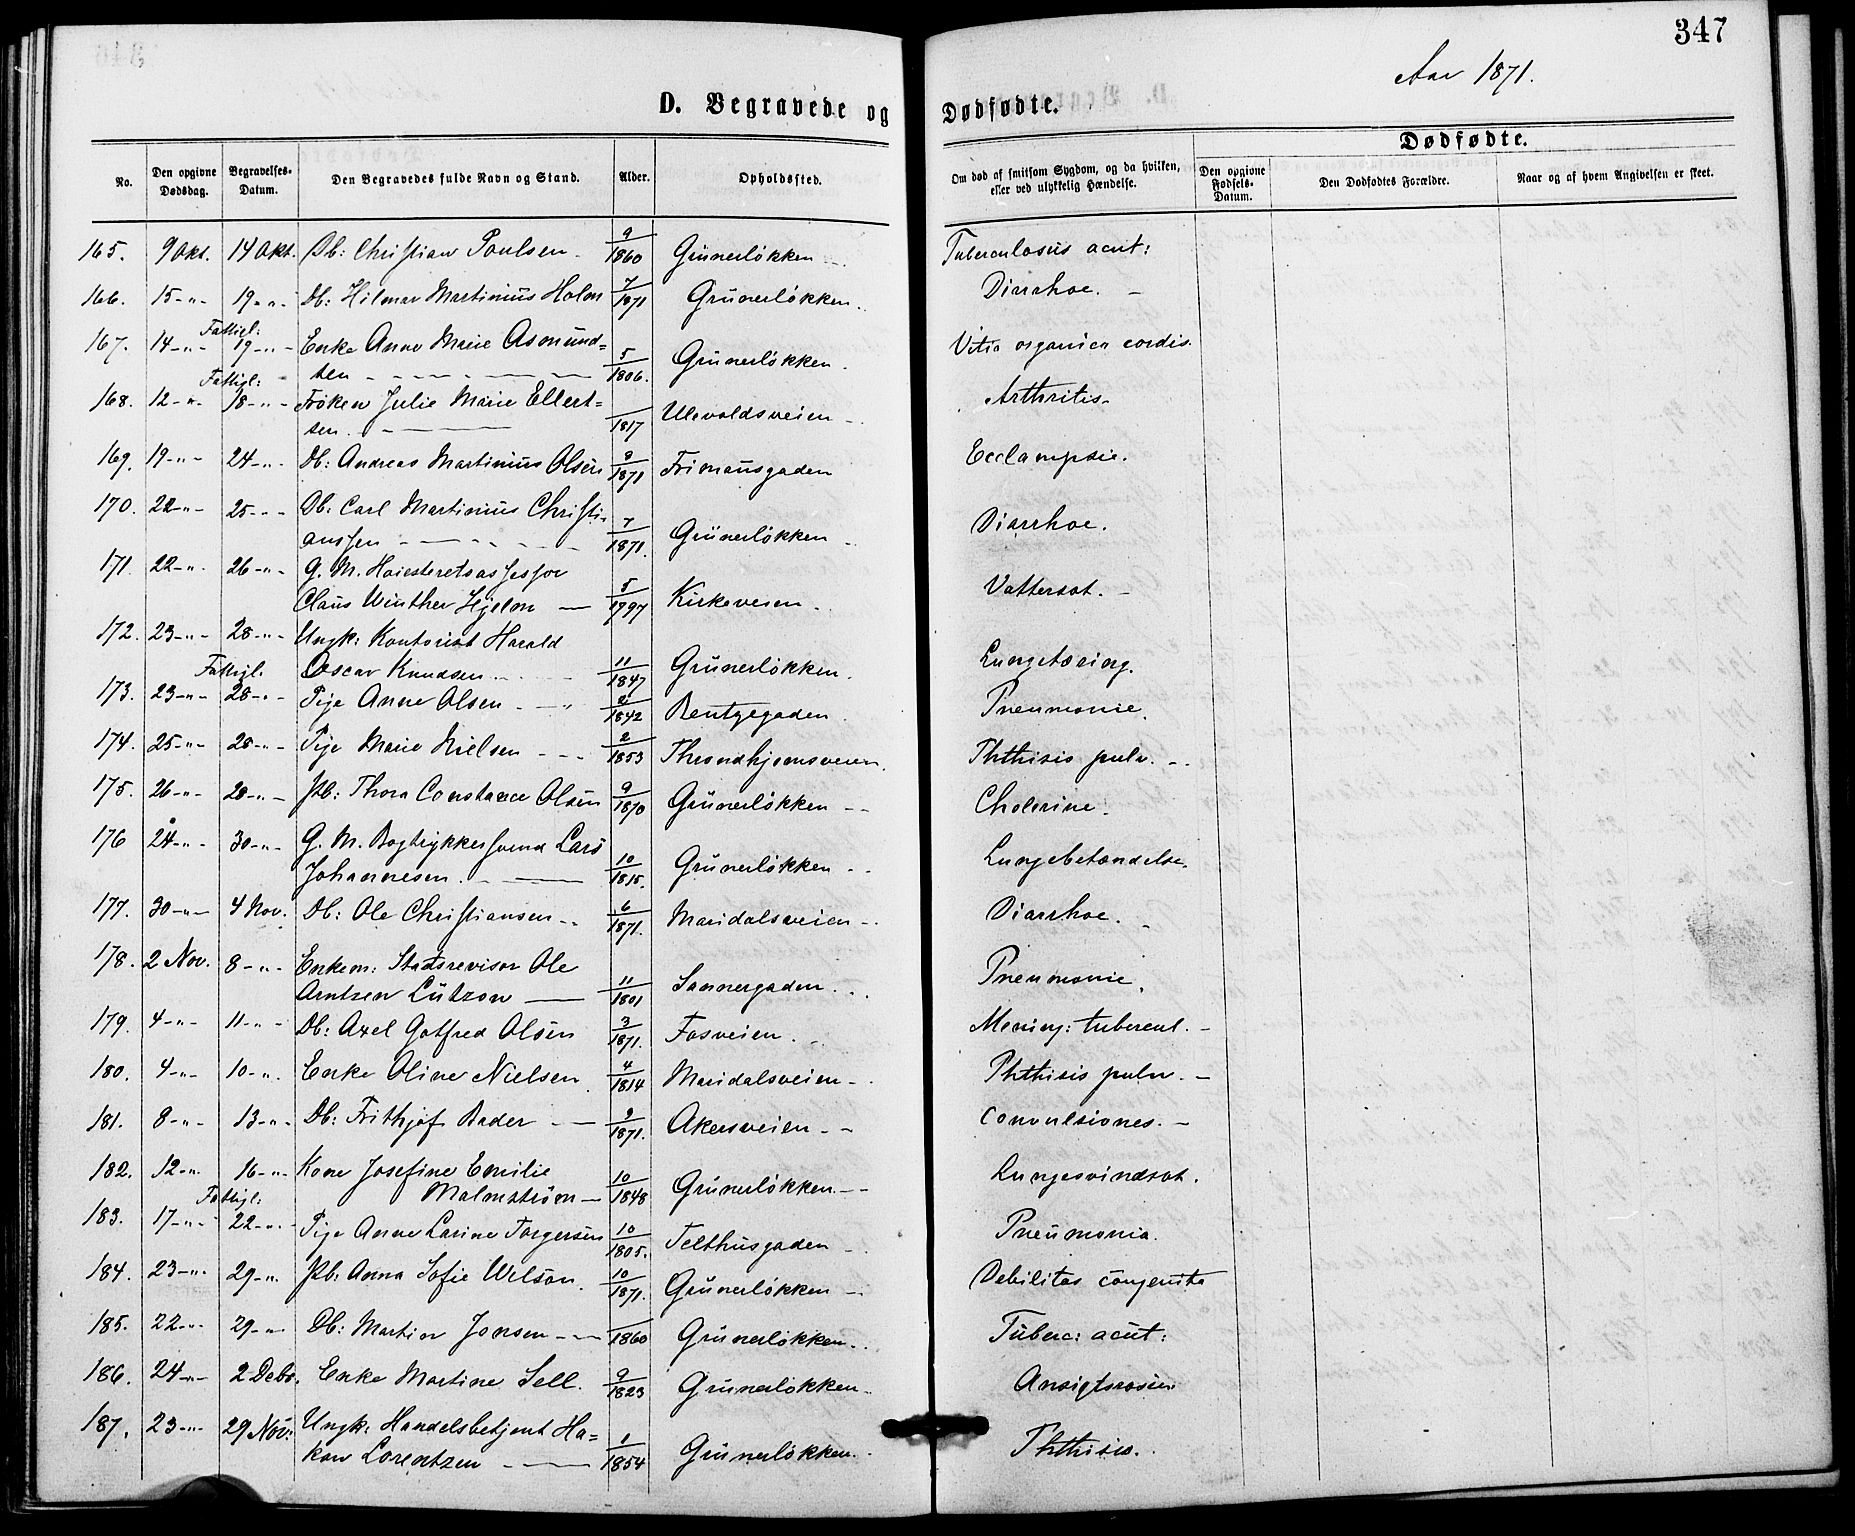 347
Aar 1871.
D. Begravede og Dødfødte.
Dødfødte.
No. Den opgivne Dødsdag. Begravelses-Datum. Den Begravedes fulde Navn og Stand. Alder. Opholdssted. Om død af smitsom Sygdom, og da hvilken, eller ved ulykkelig Hændelse. Den opgivne Fødsels-Datum. Den Dødfødtes Forældre. Naar og af hvem Angivelsen er skeet.
165. 9 Okt. 14 Okt. Db: Christian Paulsen. 9/1860 Grünerløkken Tuberculosus acut:
166. 15 - " - 19 - " - Db: Hilmar Martinius Holm 7/1871 Grünerløkken. Diarrhoe. -
Fattigl:
167. 14 - " - 19 - " - Enke Anne Marie Asmund=
sen 5/1806. Grünerløkken. Vitia organica cordis.
Fattigl:
168. 12 - " - 18 - " - Frøken Julie Marie Ellert=
sen. 1817 Ulevoldsveien Arthritis.
169. 19 - " - 24 - " - Db: Andreas Martinius Olsen 9/1871 Frimansgaden Ecclampsie.
170. 22 - " - 25 - " - Db: Carl Martinius Christi-
anssen 7/1871. Grünerløkken Diarrhoe.
171. 22 - " - 26 - " - G. M. Høiesteretsassessor
Claus Winther Hjelm 5/1797 Kirkeveien. Vattersot. -
172. 23 - " - 28 - " - Ungk: Kontorist Harald
Oscar Knudsen 11/1847 Grünerløkken. Lungetæring.
Fattigl.
173. 23 - " - 28 - " - Pige Anne Olsen 2/1842 Bentzegaden Pneumonie.
174. 25 - " - 28 - " - Pige Marie Nielsen 2/1853 Throndhjemsveien. Phthisis pulv.
175. 26 - " - 28 - " - Pb: Thora Constance Olsen 9/1870 Grünerløkken Cholerine.
176 24 - " - 30 - " - G. M. Bogtrykkersvend Lars
Johannesen. 10/1815. Grünerløkken Lungebetændelse.
177. 30 - " - 4 Nov. Db: Ole Christiansen 6/1871. Maridalsveien Diarrhoe.
178. 2 Nov. 8 - " - Enkem: Stadsrevisor Ole
Arntzen Lützow 11/1801 Sannergaden. Pneumonie.
179. 4 - " - 11 - " - Db: Axel Gotfred Olsen 3/1871. Fosveien. Mening: tubercul. -
180. 4 - " - 10 - " - Enke Oline Nielsen 4/1814 Maridalsveien Phthisis pulv. -
181. 8 - " - 13 - " - Db: Frithjof Bader 9/1871. Akersveien Convulsiones. -
182. 12 - " - 16 - " - Kone Josefine Emilie
Malmstrøm 10/1848 Grünerløkken Lungesvindsot.
Fattigl:
183. 17 - " - 22 - " - Pige Anne Larine Torgersen 10/1805. Telthusgaden Pneumonia.
184. 23 - " - 29 - " - Pb: Anna Sofie Wilson. 10/1871. Grünerløkken Debilitas congenita
185. 22 - " - 29 - " Db: Martin Jonsen 1860 Grünerløkken Tuberc: acut:
186. 24 - " - 2 Debr. Enke Martine Sell. 9/1823 Grünerløkken Ansigtsrosen
187. 23 - " - 29 Nov: Ungk: Handelsbetjent Ha=
kon Lorentzen 1/1854 Grünerløkken. Phthisis.